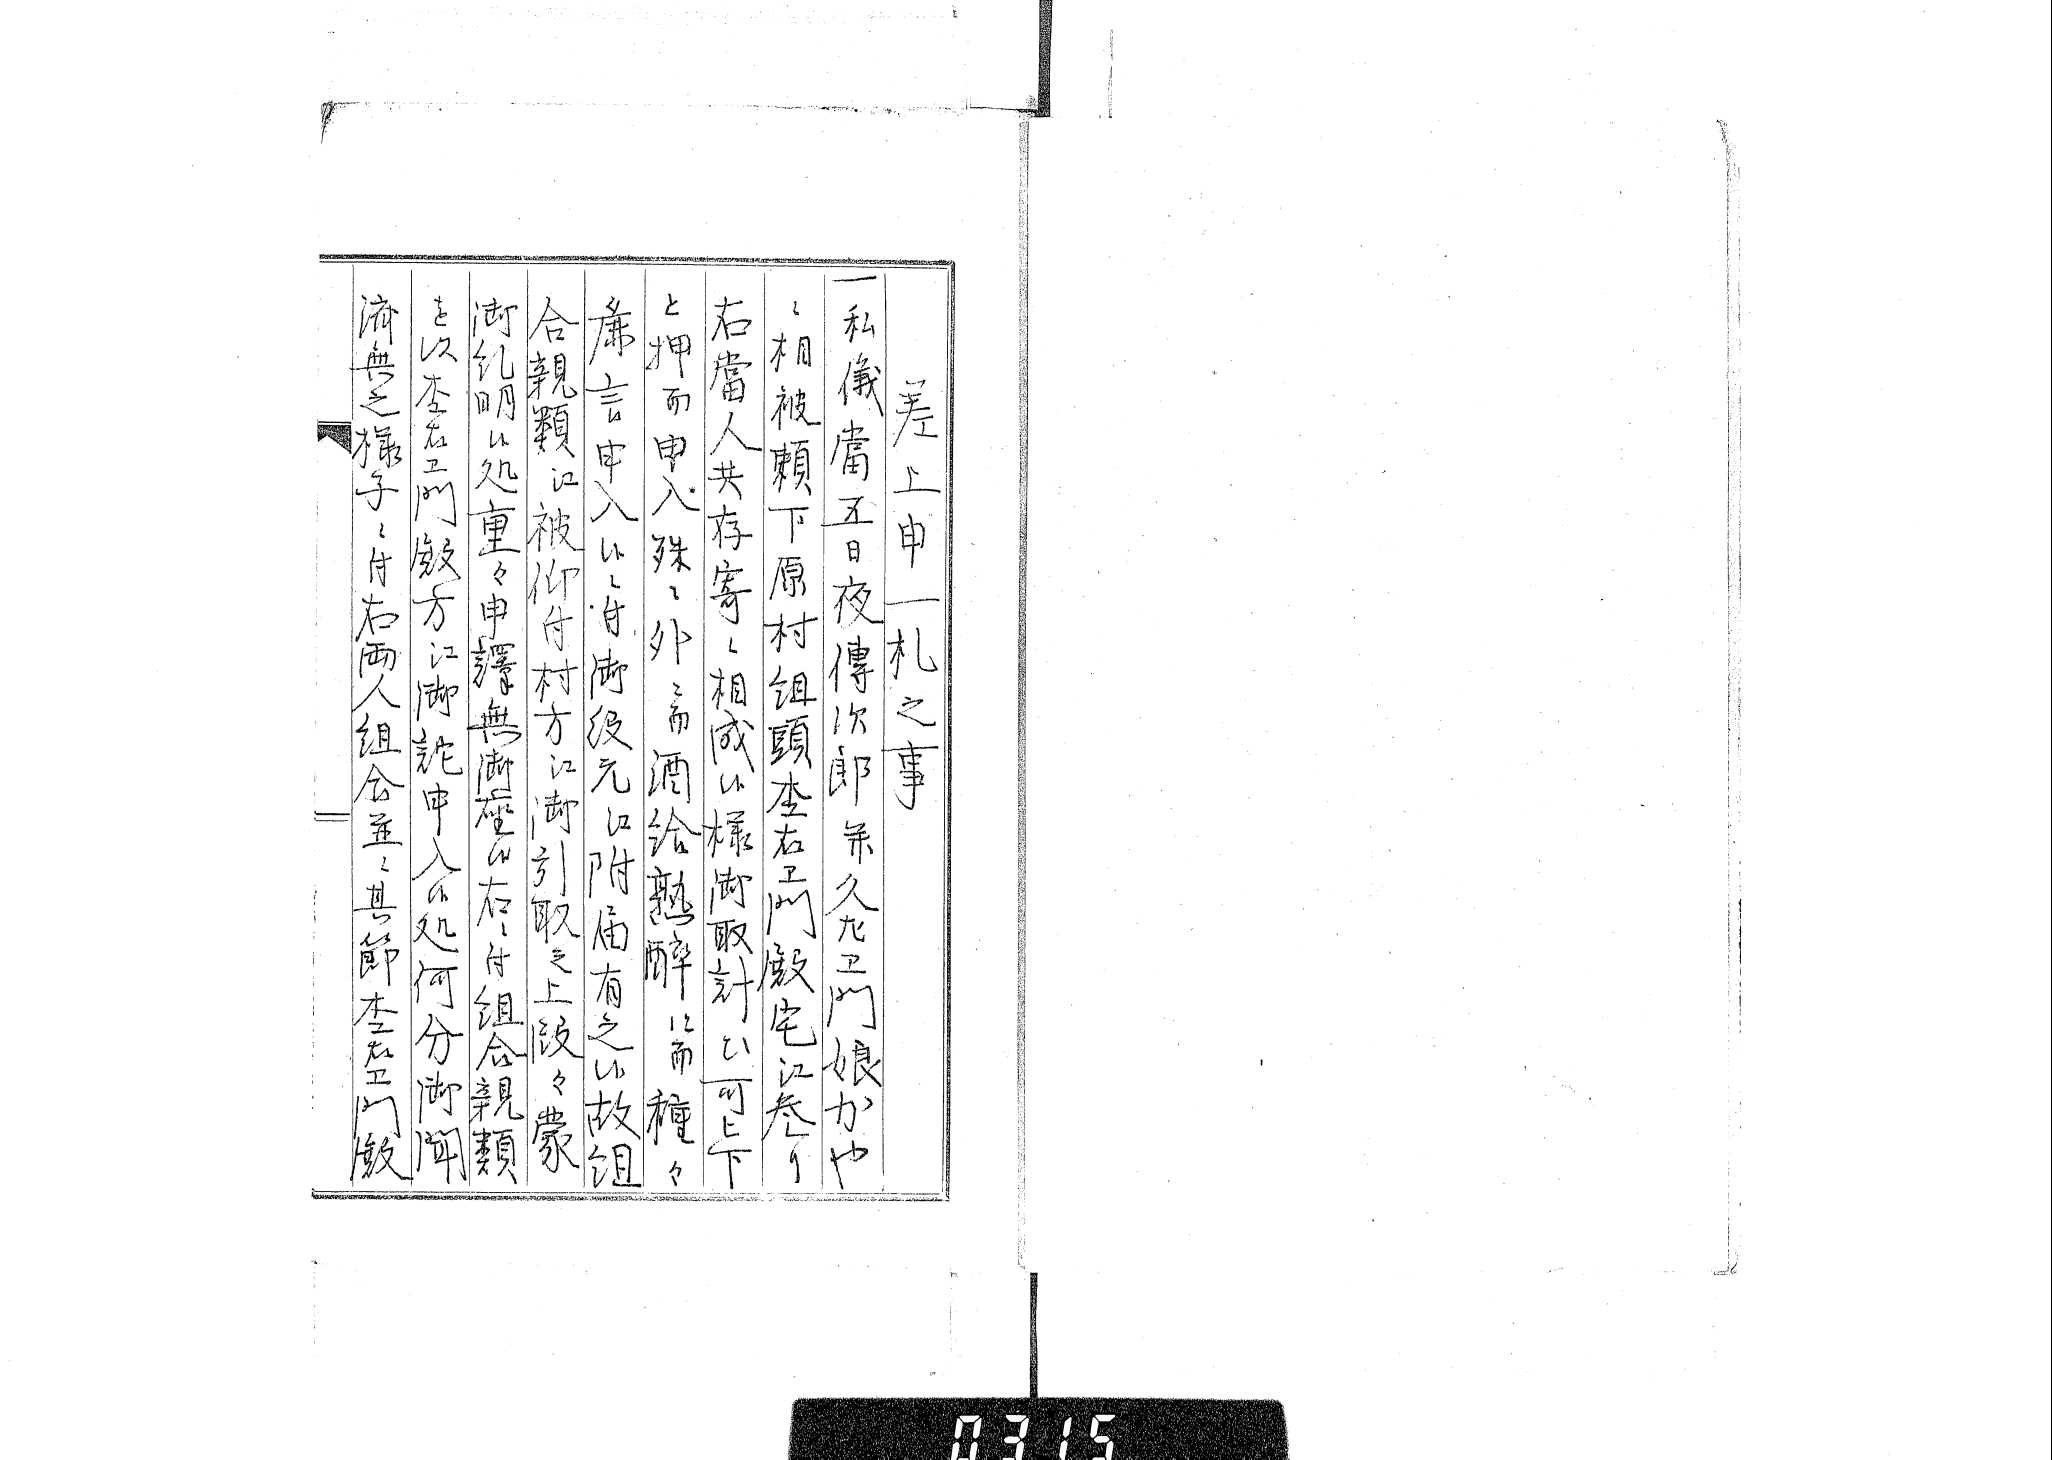 差上申一札之事
一私儀當五日夜傳次郎并久左卫門娘かや
ニ相被頼下原村組頭杢右卫門殿宅江参り
右當人共存寄ニ相成候様御取計ひ可上下
と押而申入殊ニ外ニ而酒給熟酔ニ而種々
麁言申入候ニ付御役元江附届有之候故組
合親類江被仰付村方江御引取之上段々蒙
御糺明候処重々申譯無御座候右ニ付組合親類
を以杢右卫門殿方江御詑申入候処何分御聞
済無之様子ニ付右両人組合並ニ其節杢右卫門殿
0315